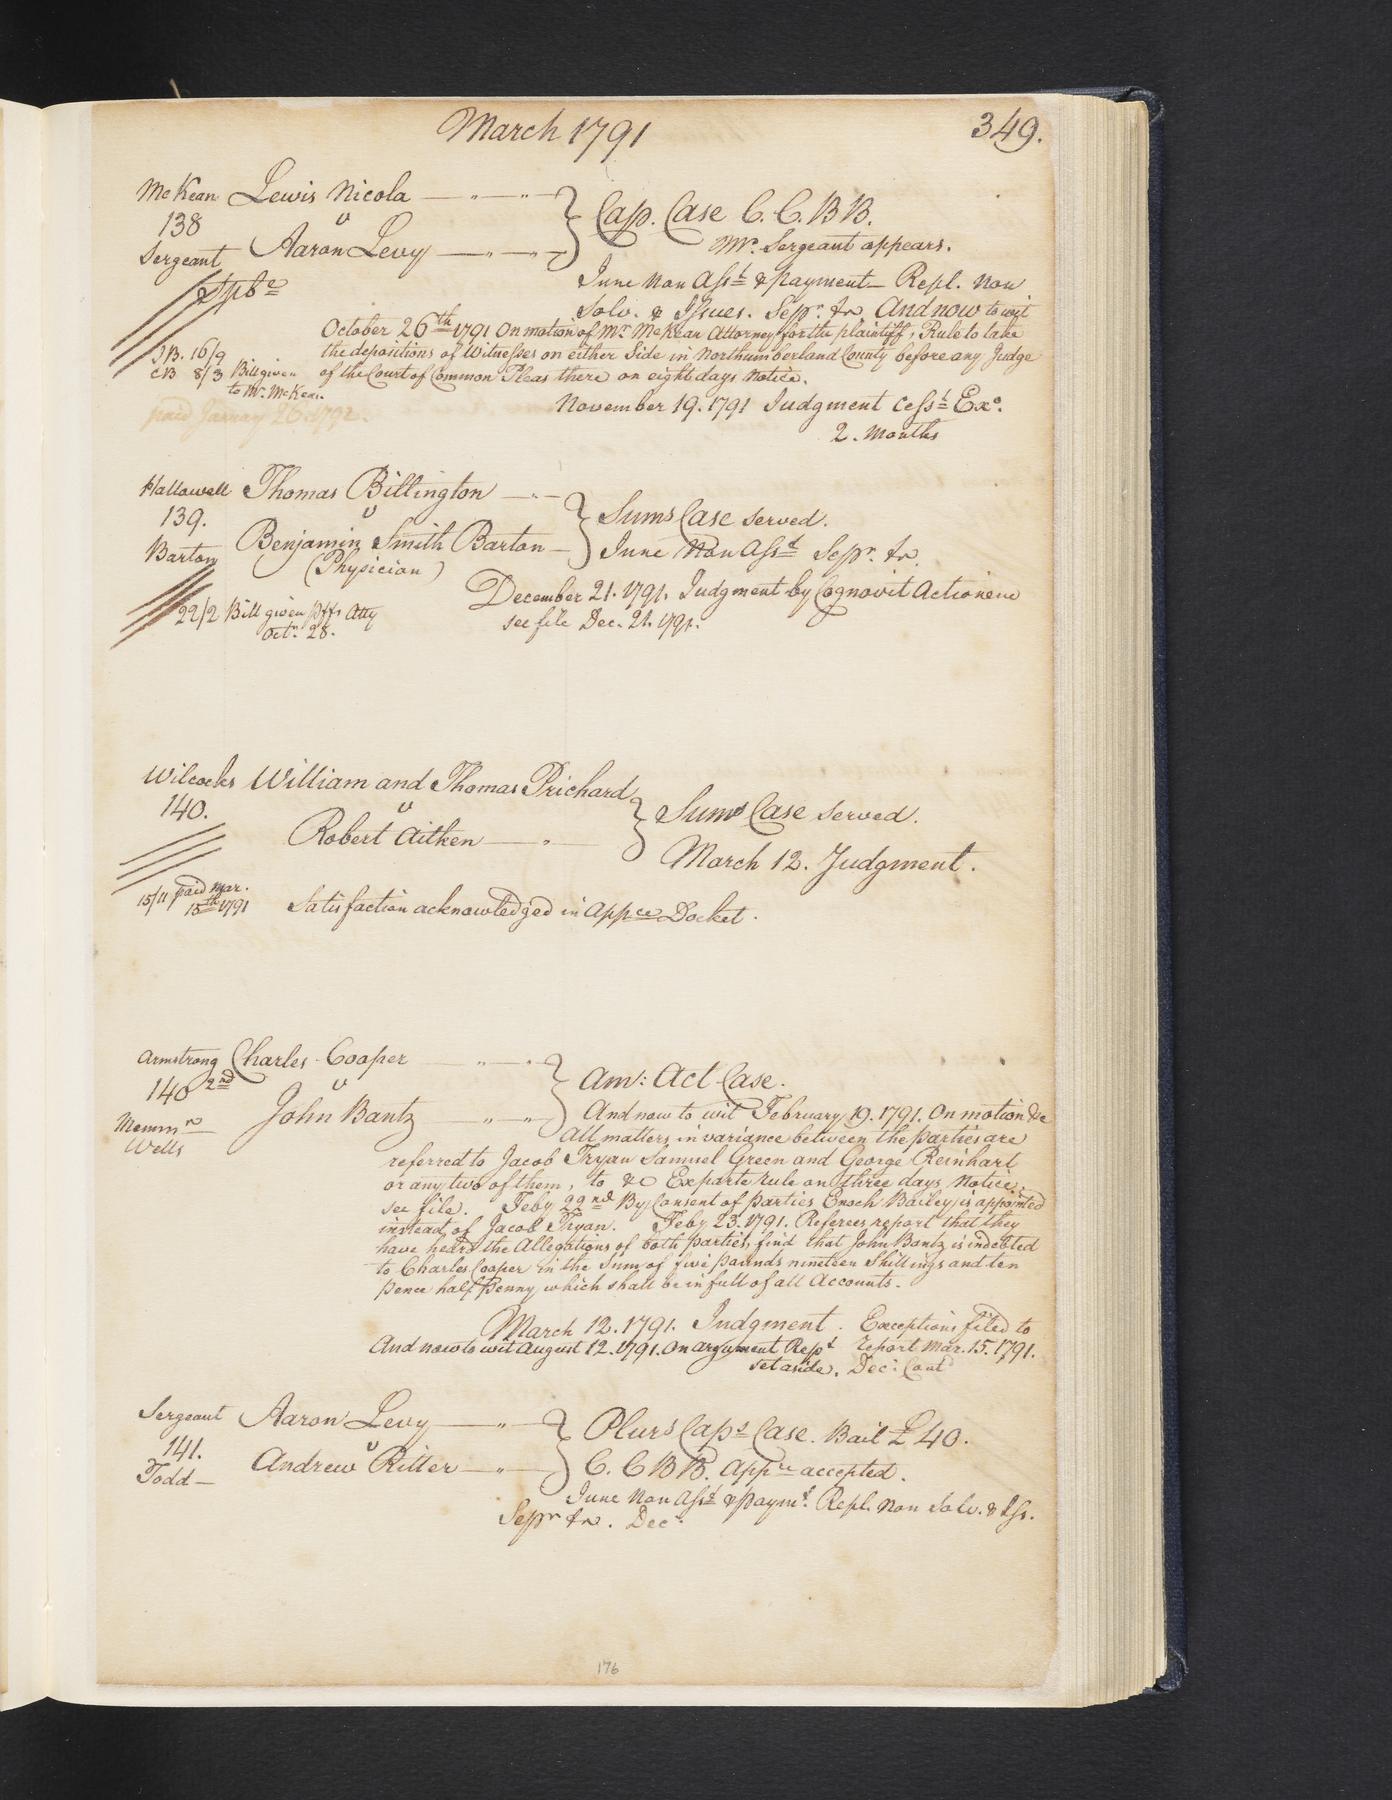 March 1791 349.
McKean Lewis Nicola
138 v
Sergeant Aaron Levy
Cap. Case C. C. B B.
Mr. Sergeant appears.
June Non Asst & payment — Repl. Non
Solv. & Issues. Sepr. tr. And now to wit
October 26th 1791 On motion of Mr McKean Attorney for the plaintiff, Rule to take
the depositions of Witnesses on either Side in Northumberland County before any Judge
of the Court of Common Pleas there on eight days Notice.
JB. 16/9
CB 8/3 Bill given
to Mr. McKean.
paid January 26. 1792.
November 19. 1791 Judgment Cesst Exo.
2. Months
Hallowell Thomas Billington
139. v
Barton Benjamin Smith Barton
(Physician)
Sums Case Served.
June Non Asst Sepr. tr.
December 21. 1791. Judgment by Cognovit Actionem
see file Dec. 21. 1791.
22/2 Bill given pffs Atty
Octr. 28.
Wilcocks William and Thomas Prichard
140. v
Robert Aitken
Sums Case Served.
March 12. Judgment.
15/11 paid Mar.
15th 1791
Satisfaction acknowledged in Appce Docket.
Armstrong Charles Cooper
140 2nd v
John Bantz
Wells
Am: Act Case.
And now to wit February 19. 1791. On motion &c
All matters in variance between the parties are
referred to Jacob Tryan Samuel Green and George Reinhart
or any two of them, to &c Exparte rule on three days Notice.
see file. Feby 22nd By Consent of parties Enoch Bailey is appointed
instead of Jacob Tryan. Feby 23. 1791. Referees report that they
have heard the Allegations of both parties, find that John Bantz is indebted
to Charles Cooper in the Sum of five pounds nineteen Shillings and ten
pence half penny which shall be in full of all Accounts.
March 12. 1791. Judgment. Exceptions filed to
And now to wit August 12. 1791. On argument Rept report Mar. 15. 1791.
set aside. Dec: Cont
Sergeant Aaron Levy
141. v
Todd — Andrew Ritter
Plurs Caps Case. Bail £ 40.
C. C B B. Appce accepted.
June Non Asst & paymt. Repl. Non Solv. & Iss.
Sepr tr. Decr
176